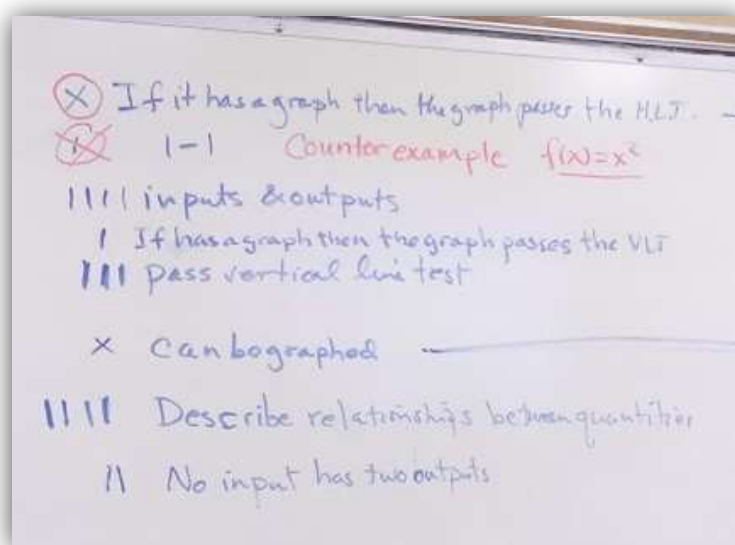 X If it has a graph then the graph passes the H.L.T.
1 1-1 Counter example f(x)=x²
|||| inputs & outputs
| If has a graph then the graph passes the VLT
||| pass vertical line test
X Can be graphed
|||| Describe relationships between quantities
|| No input has two outputs